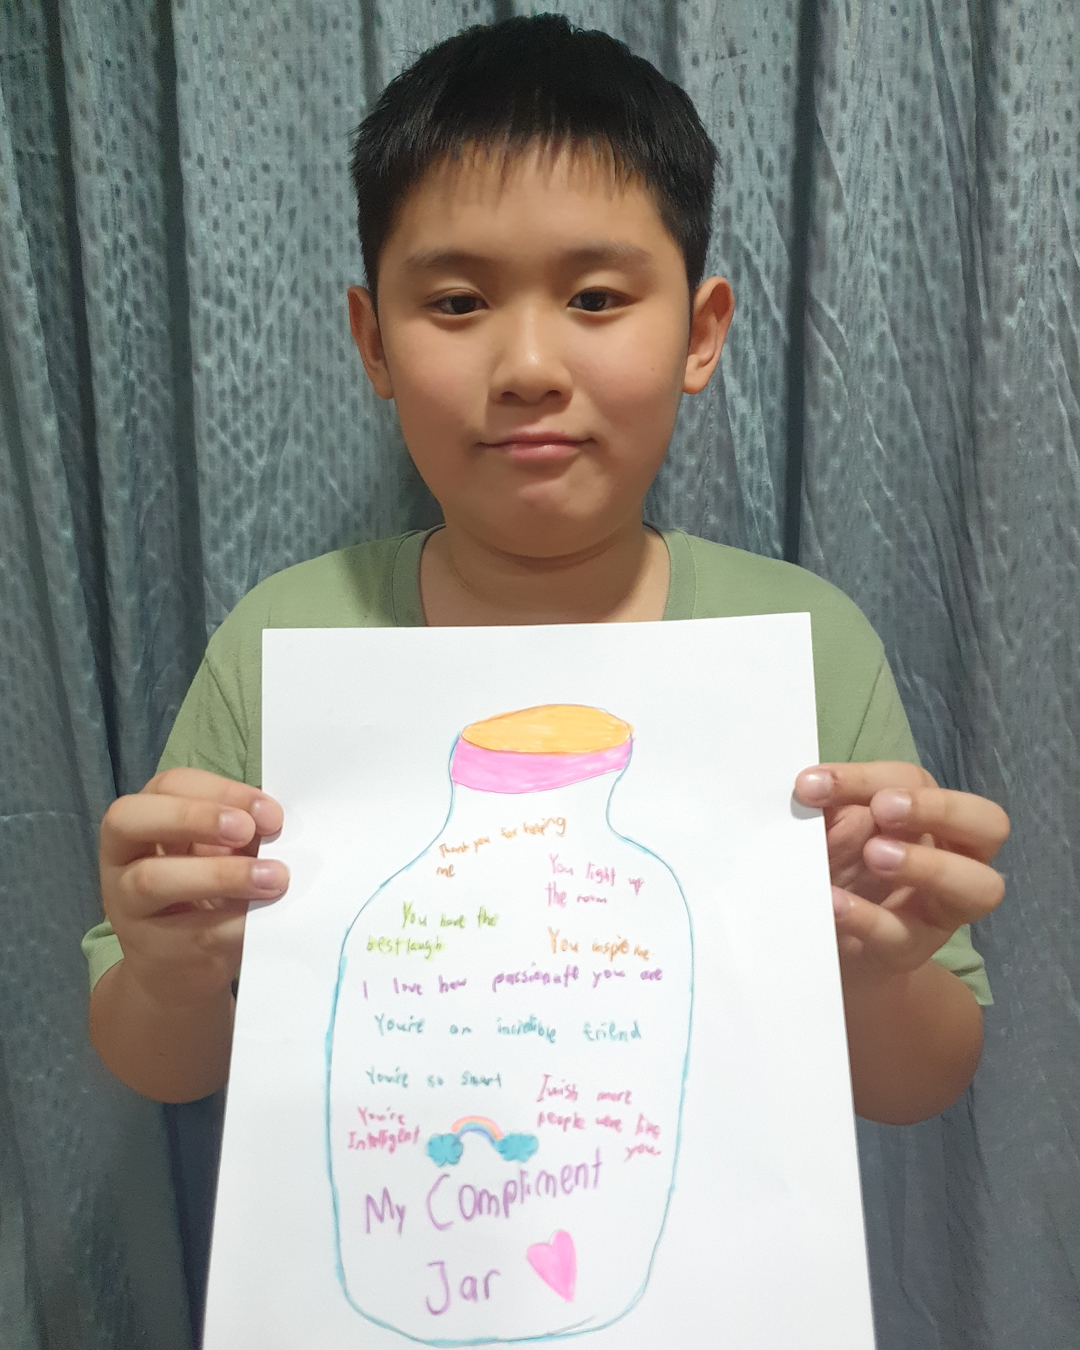 Thank you for helping
me
You light up
the room
You have the
best laugh
You inspire me.
I love how passionate you are
You're an incredible friend
You're so smart
I wish more
people were like
you.
You're
Intelligent
My Compliment
Jar